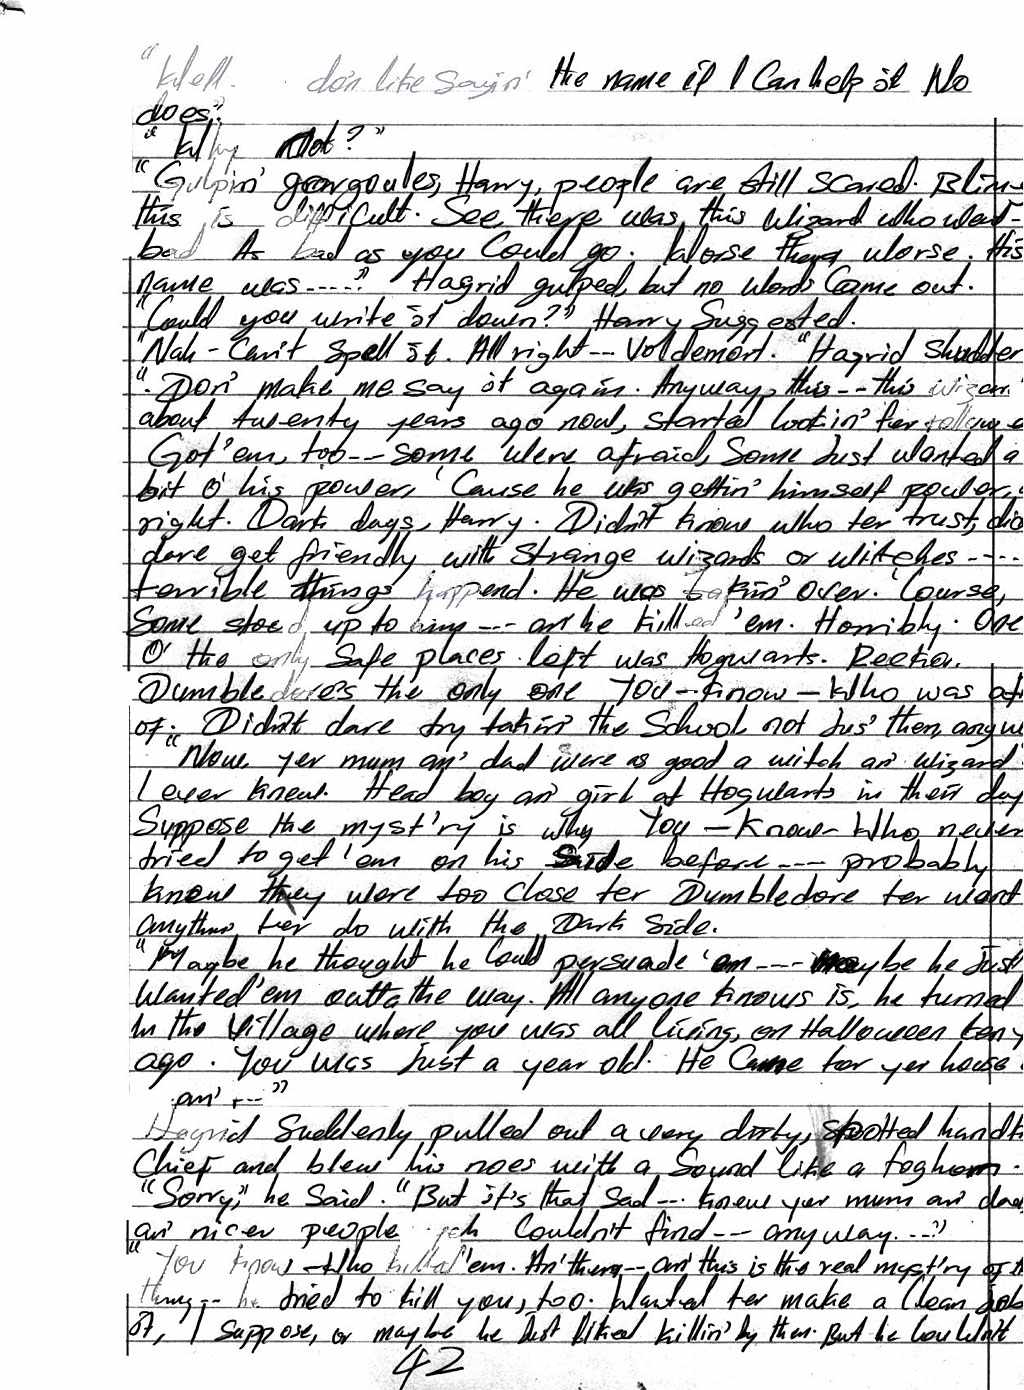 "Well. don like sayin' the name if I can help it No
does."
"Why Not?"
"Gulpin' gorgoules, Harry, people are still scared. Blim
this is difficult. See, there was this wizard who went-
bad As bad as you could go. Worse than worse. His
name was----" Hagrid gulped, but no words came out.
"Could you write it down?" Harry Suggested.
"Nah - Can't spell it. All right--- Voldemort. "Hagrid shudder
". Don' make me say it again. Anyway, this -- this wizar
about twenty years ago now, started lookin' fer
Got 'em, too -- some were afraid, Some Just wanted a
bit o' his power, 'Cause he was gettin' himself power,
right. Dark days, Harry. Didn't know who ter trust,
dare get friendly with strange wizards or witches ----
terrible things happend. He was takin' over. 'Course,
Some stood up to him --- an' he killed 'em. Horribly. One
O' the only Safe places left was Hogwarts.
Dumbledore's the only one You-know-Who was af
of. Didn't dare try takin' the School not Jus' then, anyw
"Now yer mum an' dad were as good a witch an' wizard
I ever knew. Head boy an' girl at Hogwarts in their day
Suppose the myst'ry is why You-Know-Who never
tried to get 'em on his Side before --- probably
knew they were too Close ter Dumbledore ter want
ter do with the Dark Side.
"Maybe he thought he could persuade 'em --- Maybe he Just
wanted 'em outta the way. All anyone knows is, he turned
In the Village where you was all living, on Halloween ten y
ago. You was Just a year old. He Came ter yer house
an' ---"
Hagrid Suddenly pulled out a very dirty, spotted handk
Chief and blew his noes with a Sound like a foghorn.
"Sorry," he Said. "But it's that sad --- knew yer mum an' da
an' nicer people yeh Couldn't find --- anyway. ---"
"You know -Who killed 'em. An' then -- an' this is the real myst'ry of t
thing -- he tried to kill you, too. Wanted ter make a Clean Job
of, I suppose, or maybe he Just liked killin' by then. But he Couldn't
42